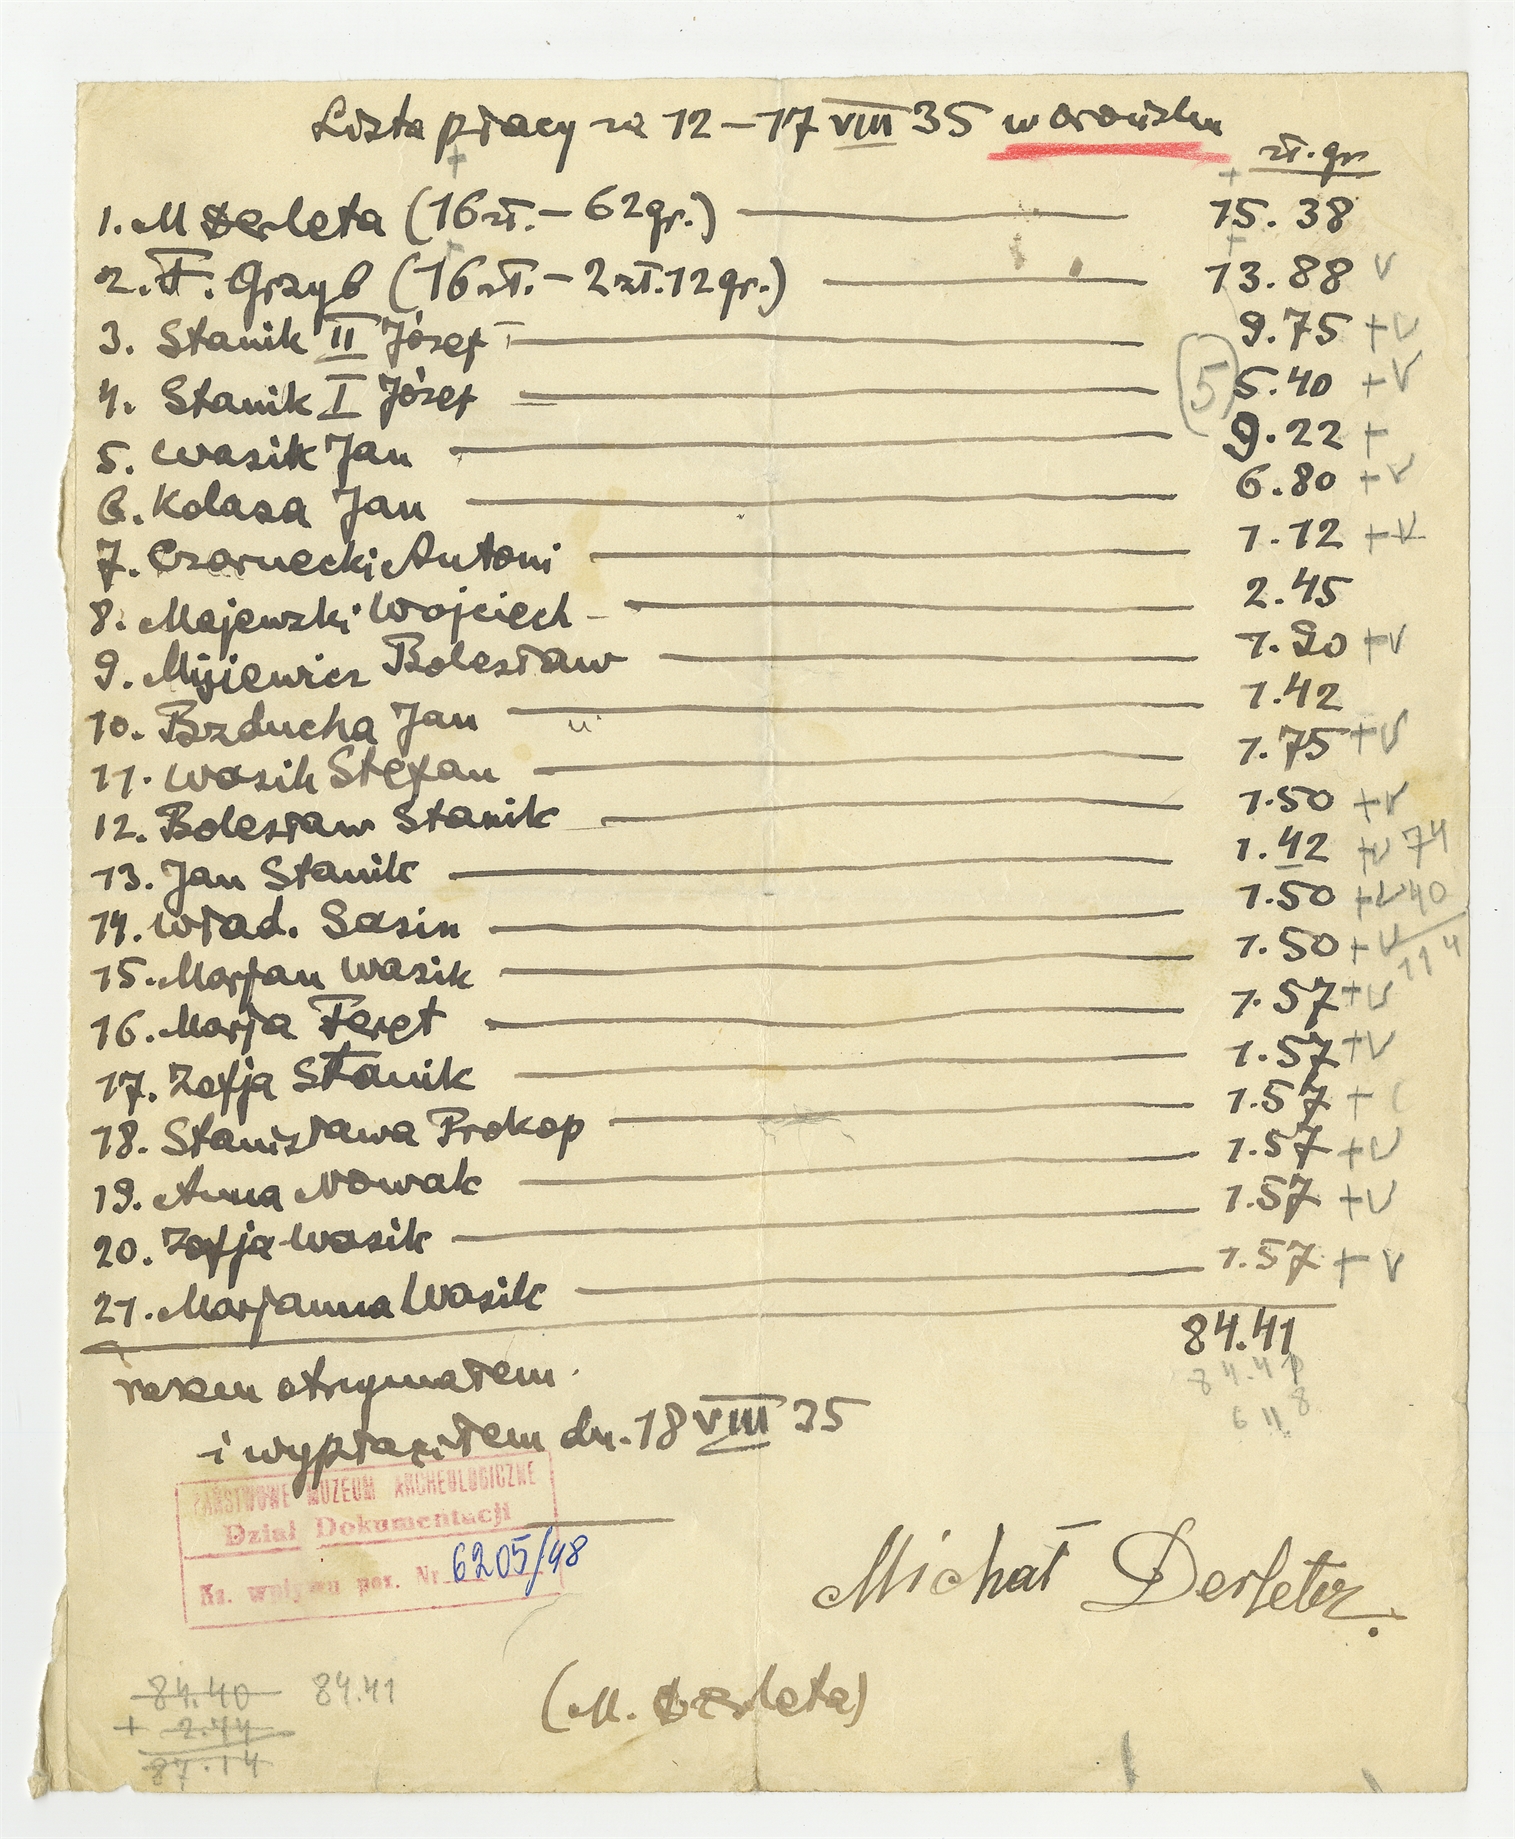 Lista płacy za 12–17 VIII 35 w Grońsku
zł. gr.
1. M Derleta (16 zł. – 62 gr.) 15.38
2. F. Grzyb (16 zł. – 2 zł. 12 gr.) 13.88 v
3. Stanik II Józef 9.75 + v
4. Stanik I Józef (5) 5.40 + v
5. Wasik Jan 9.22 +
6. Kolasa Jan 6.80 + v
7. Czarnecki Antoni 1.12 + v
8. Majewski Wojciech 2.45
9. Mijiewicz Bolesław 1.90 + v
10. Bzducha Jan 1.42
11. Wasik Stefan 1.75 + v
12. Bolesław Stanik 1.50 + v
13. Jan Stanik 1.42 + v 74
14. Wład. Sasin 1.50 + v 40
15. Marjan Wasik 1.50 + v 114
16. Marja Feret 1.57 + v
17. Zofja Stanik 1.57 + v
18. Stanisława Prokop 1.57 +
19. Anna Nowak 1.57 + v
20. Zofja Wasik 1.57 + v
21. Marjanna Wasik 1.57 + v
84.41
razem otrzymałem
i wypłaciłem dn. 18 VIII 35
PAŃSTWOWE MUZEUM ARCHEOLOGICZNE
Dział Dokumentacji
Ks. wpływu poz. Nr 6205/48
Michał Derleta.
(M. Derleta)
84.40 84.41
+ 2.74
87.14